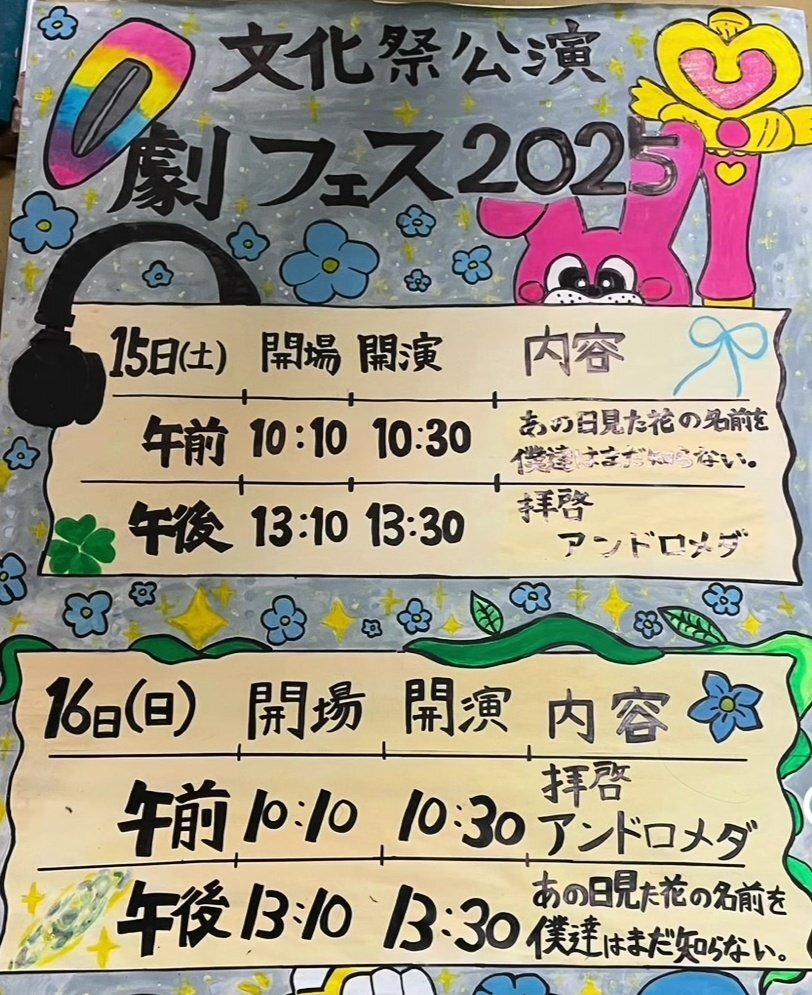 文化祭公演
劇フェス2025
15日(土) 開場 開演 内容
午前 10:10 10:30 あの日見た花の名前を
僕達はまだ知らない。
午後 13:10 13:30 拝啓
アンドロメダ
16日(日) 開場 開演 内容
午前 10:10 10:30 拝啓
アンドロメダ
午後 13:10 13:30 あの日見た花の名前を
僕達はまだ知らない。